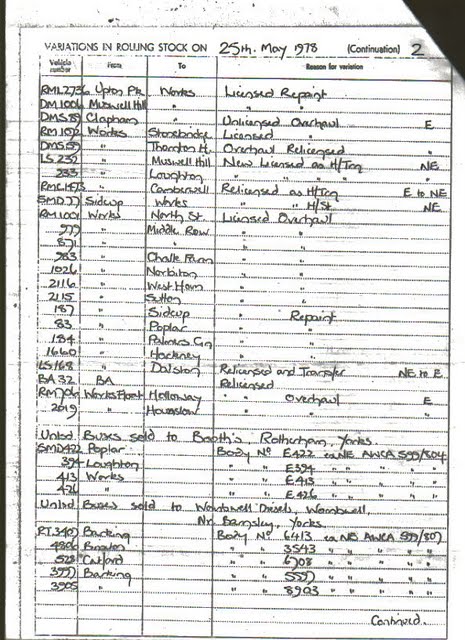 VARIATIONS IN ROLLING STOCK ON 25th. May 1978 (Continuation) 2
Vehicle number From To Reason for variation
RML2736 Upton Pk Works Licensed Repaint
DM1006 Muswell Hill " " "
Clapham " Unlicensed Overhaul E
Works Stonebridge Licensed "
" Thornton H. Overhaul Relicensed
LS 232 " Muswell Hill New Licensed as H/Trg NE
233 " Loughton " " " "
" Camberwell Relicensed as H/Trg E to NE
Sidcup Works " H/St NE
RM1001 Works North St. Licensed Overhaul
" Middle Row " "
871 " " " "
983 " Chalk Farm " "
1026 " Norbiton " "
2116 " West Ham " "
2115 " Sutton " "
187 " Sidcup " Repaint
83 " Poplar " "
184 " Palmers Gn " "
1660 " Hackney " "
LS168 " Dalston Relicensed and Transfer NE to E
BA32 BA Relicensed
Works Float Holloway " Overhaul E
2019 " Hounslow " " "
Unlsd Buses sold to Booth's, Rotherham, Yorks.
SMD422 Poplar Body No E422 ex NE AWCA 599/804
394 Loughton " " E394 " " " "
413 Works " " E413 " " " "
426 " " " E426 " " " "
Unlsd Buses sold to Wombwell Diesels, Wombwell,
Nr. Barnsley, Yorks
Barking Body No 6413 ex NE AWCA 599/807
" " 3543 " " " "
Catford " " 6708 " " " "
Barking " " " " " "
3905 " " " 8903 " " " "
Continued.